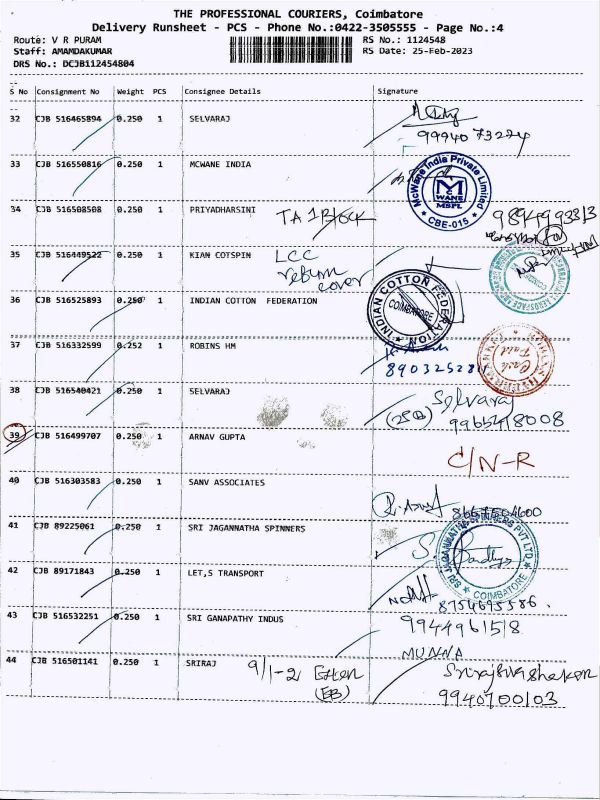 THE PROFESSIONAL COURIERS, Coimbatore
Delivery Runsheet - PCS - Phone No.:0422-3505555 - Page No.:4
Route: V R PURAM RS No.: 1124548
Staff: AMAMDAKUMAR RS Date: 25-Feb-2023
DRS No.: DCJB112454804
S No Consignment No Weight PCS Consignee Details Signature
32 CJB 516465894 0.250 1 SELVARAJ
33 CJB 516550816 0.250 1 MCWANE INDIA
McWane India Private Limited
M
C WANE
MSPL
* CBE-015 *
34 CJB 516508508 0.250 1 PRIYADHARSINI TA 1 Block
35 CJB 516449522 0.250 1 KIAN COTSPIN LCC
return
cover
36 CJB 516525893 0.250 1 INDIAN COTTON FEDERATION
INDIAN COTTON FEDERATION
COIMBATORE
37 CJB 516332599 0.252 1 ROBINS HM
Cash
Paid
38 CJB 516540421 0.250 1 SELVARAJ Selvaraj
9965418008
39 CJB 516499707 0.250 1 ARNAV GUPTA C/N-R
40 CJB 516303583 0.250 1 SANV ASSOCIATES
41 CJB 89225061 0.250 1 SRI JAGANNATHA SPINNERS
SRI JAGANNATHA SPINNERS PVT LTD
* COIMBATORE *
42 CJB 89171843 0.250 1 LET,S TRANSPORT
43 CJB 516532251 0.250 1 SRI GANAPATHY INDUS 9944961518
MUNNA
44 CJB 516501141 0.250 1 SRIRAJ 9/1-2
(EB)
9940700103